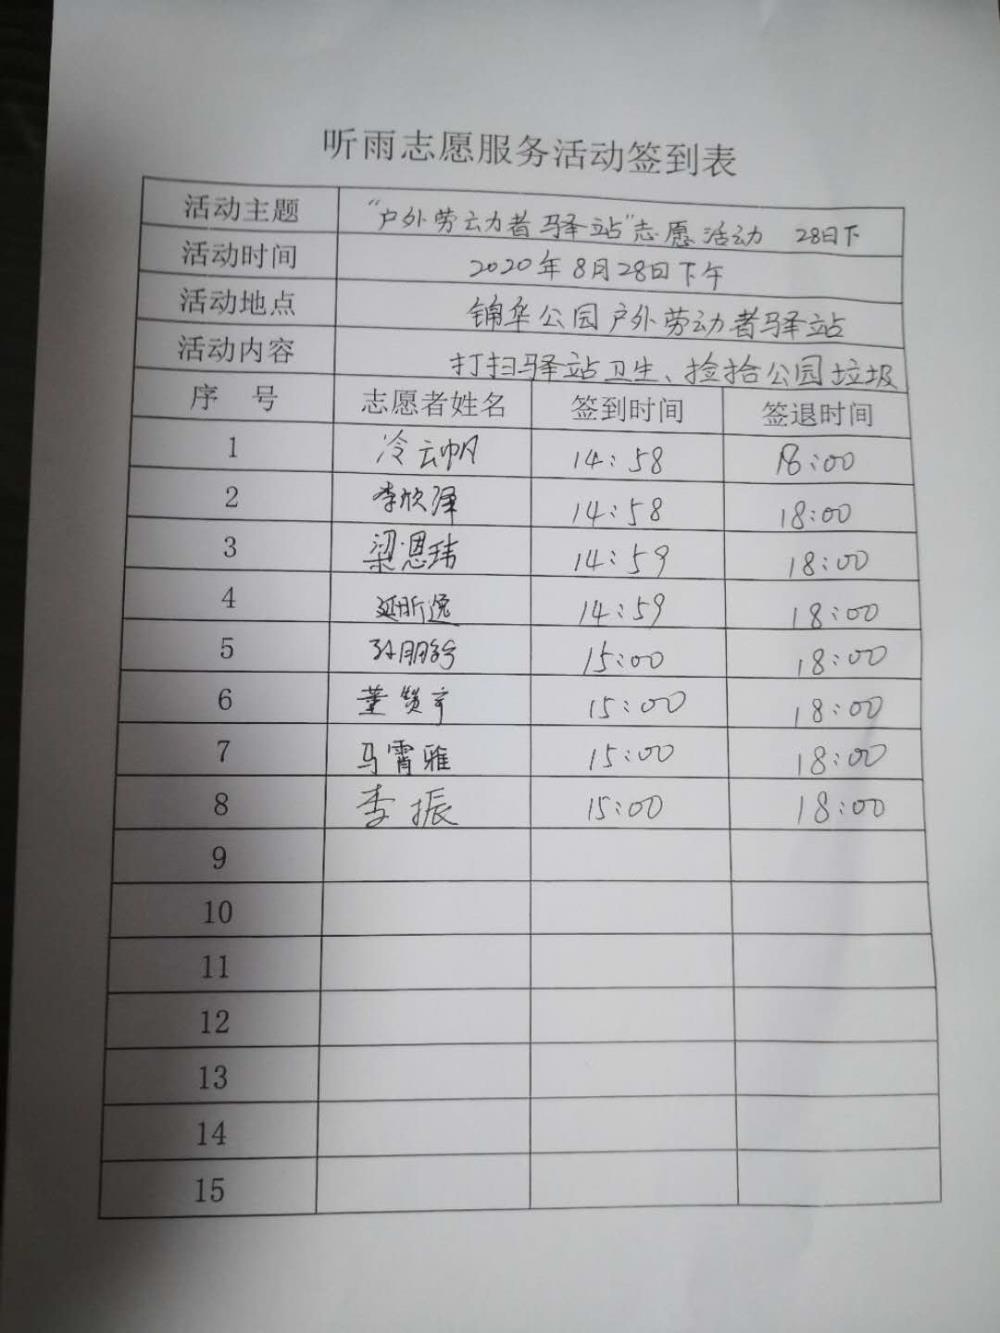 听雨志愿服务活动签到表
活动主题 “户外劳动者驿站”志愿活动 28日下
活动时间 2020年8月28日下午
活动地点 锦华公园户外劳动者驿站
活动内容 打扫驿站卫生、捡拾公园垃圾
序 号 志愿者姓名 签到时间 签退时间
1 冷云帆 14:58 18:00
2 李欣泽 14:58 18:00
3 梁恩玮 14:59 18:00
4 延昕逸 14:59 18:00
5 孙朋 15:00 18:00
6 董赞宇 15:00 18:00
7 马霄雅 15:00 18:00
8 李振 15:00 18:00
9
10
11
12
13
14
15